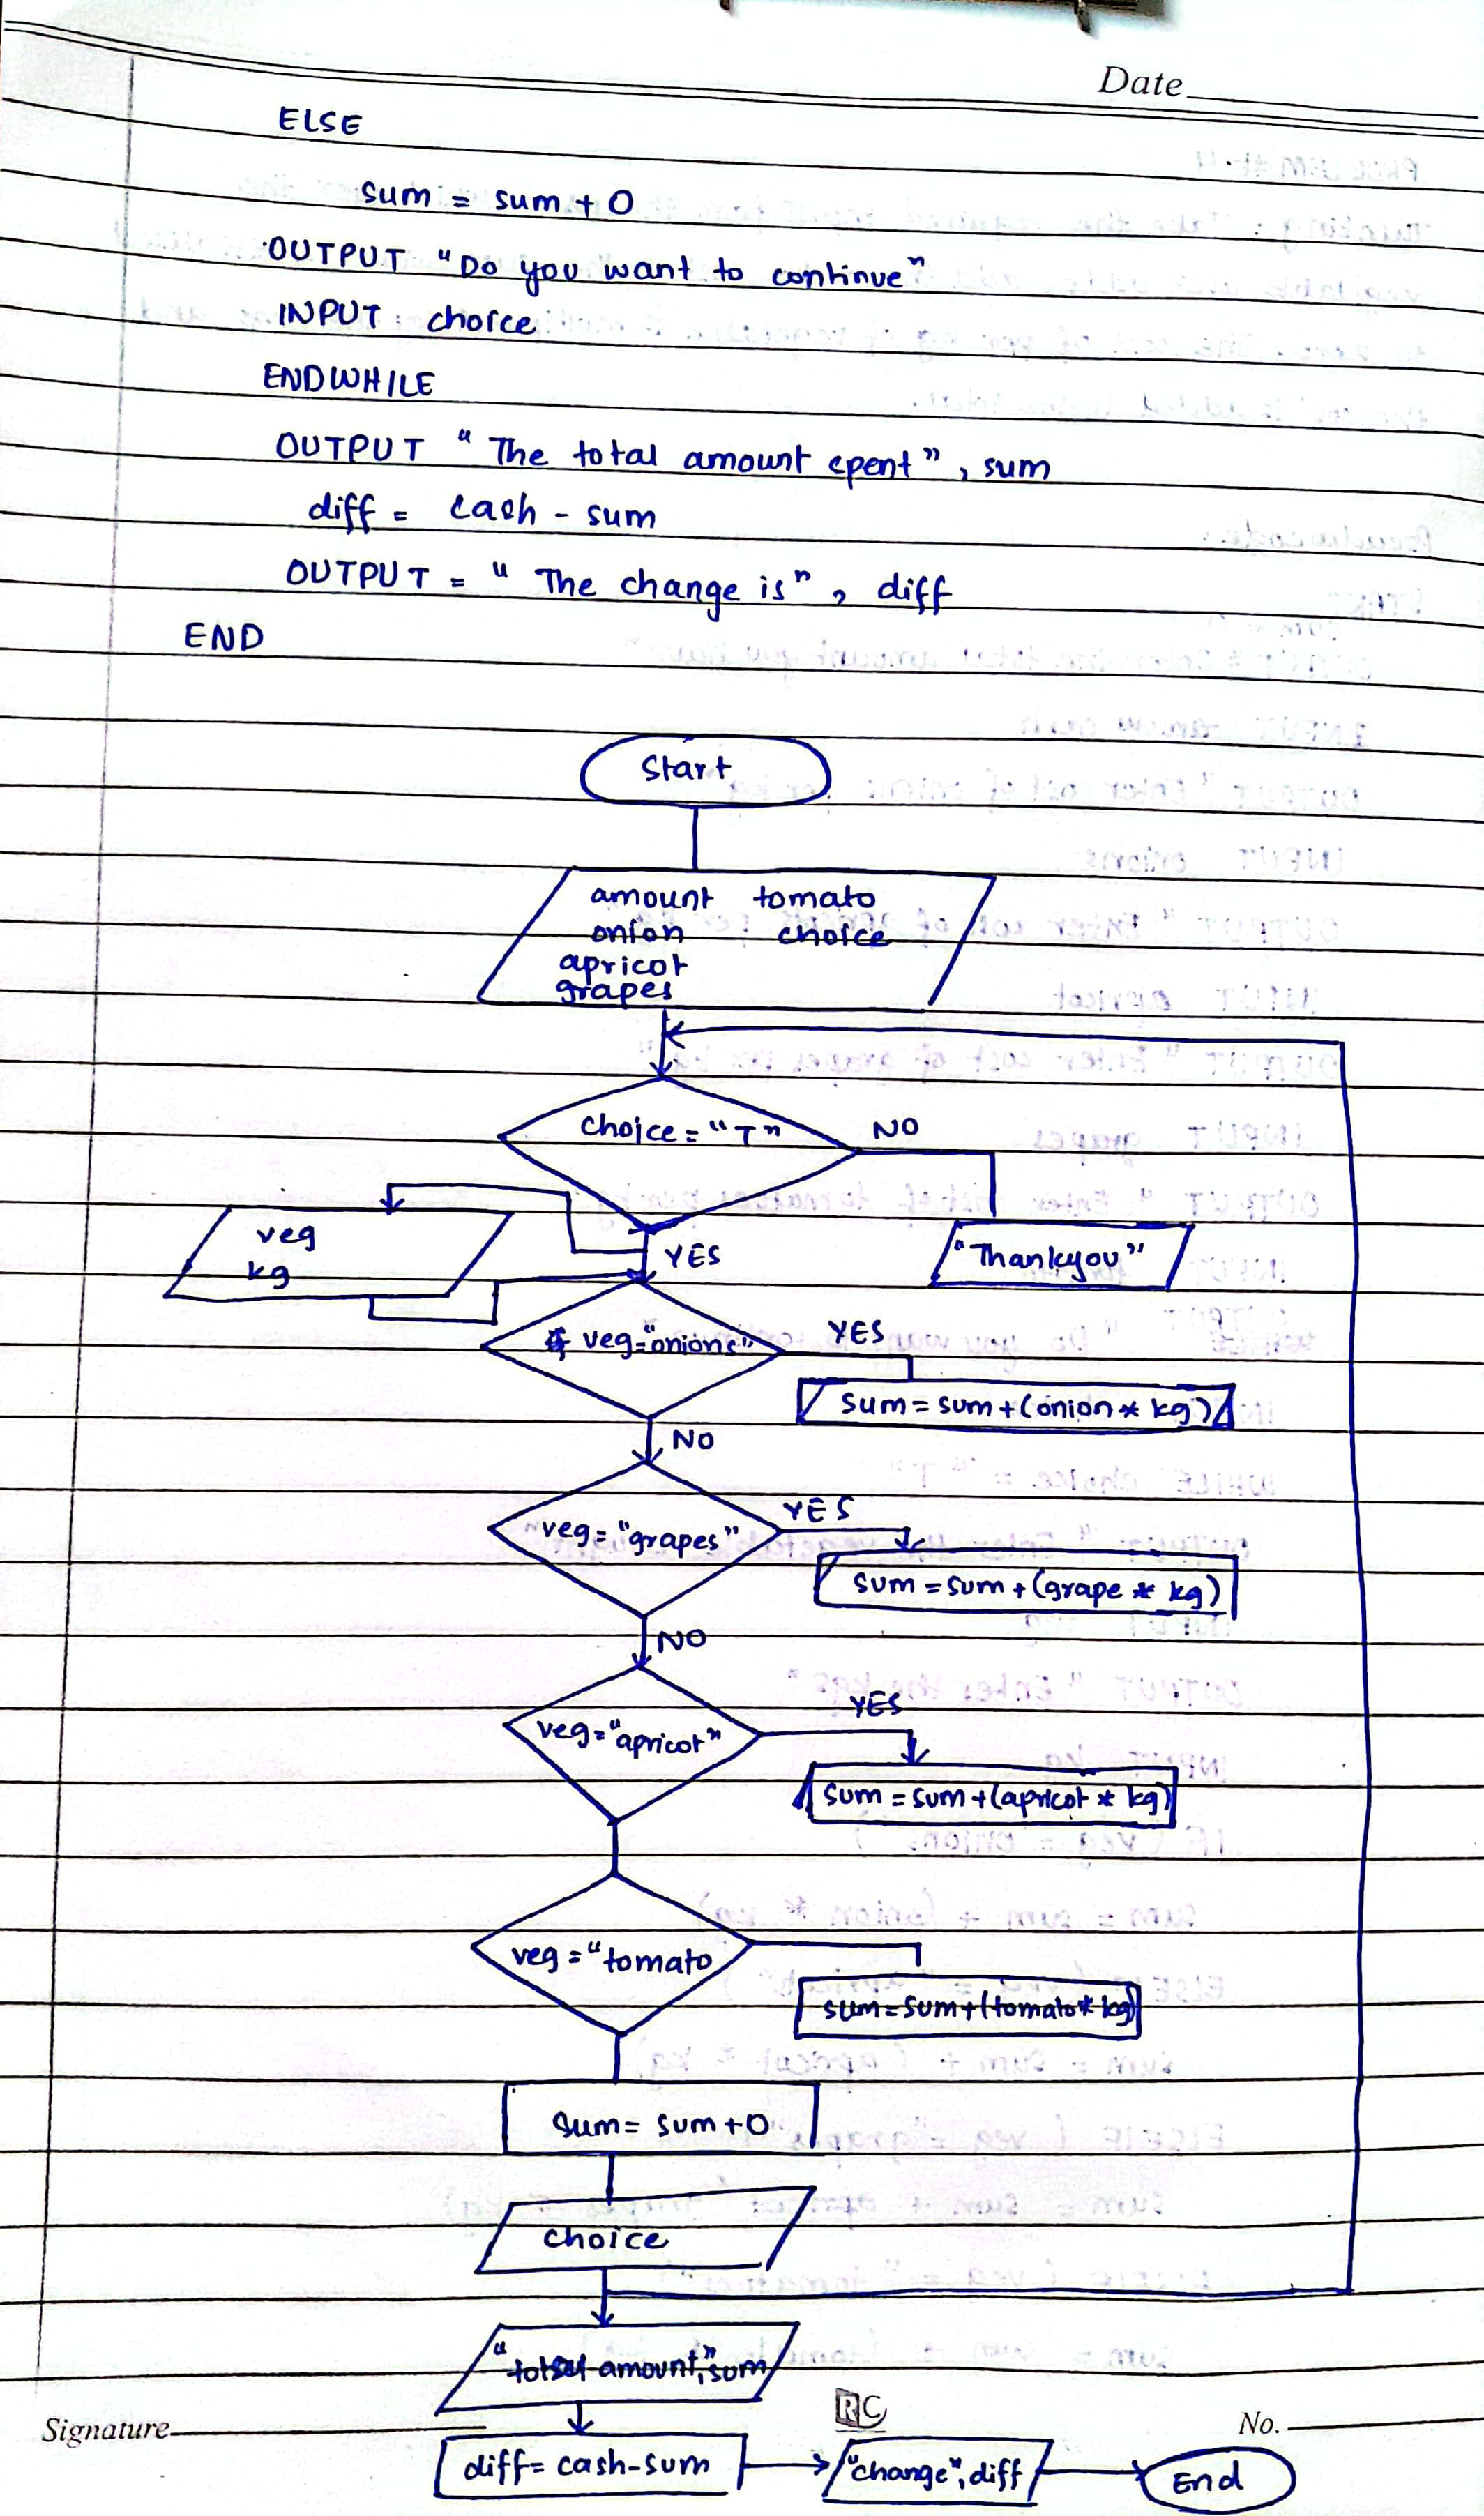 Date
ELSE
sum = sum + 0
OUTPUT "Do you want to continue"
INPUT choice
ENDWHILE
OUTPUT "The total amount spent", sum
diff = cash - sum
OUTPUT = "The change is", diff
END
Start
amount tomato
onion choice
apricot
grapes
choice = "T"
NO
veg
kg
YES
"Thankyou"
if veg="onions"
YES
sum = sum + (onion * kg)
NO
veg = "grapes"
YES
sum = sum + (grape * kg)
NO
veg="apricot"
YES
sum = sum + (apricot * kg)
veg = "tomato
sum = sum + (tomato * kg)
sum = sum + 0
choice
"total amount," sum
RC
Signature
No.
diff = cash - sum
"change", diff
End